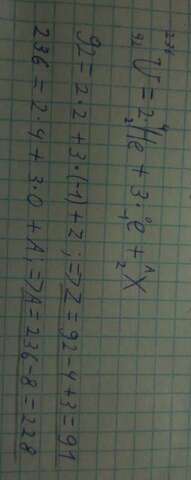 ²³⁶₉₂U = 2·⁴₂He + 3·⁰₋₁e + ᴬ_ZX
92 = 2·2 + 3·(-1) + Z; ⇒ Z = 92-4+3 = 91
236 = 2·4 + 3·0 + A; ⇒ A = 236-8 = 228